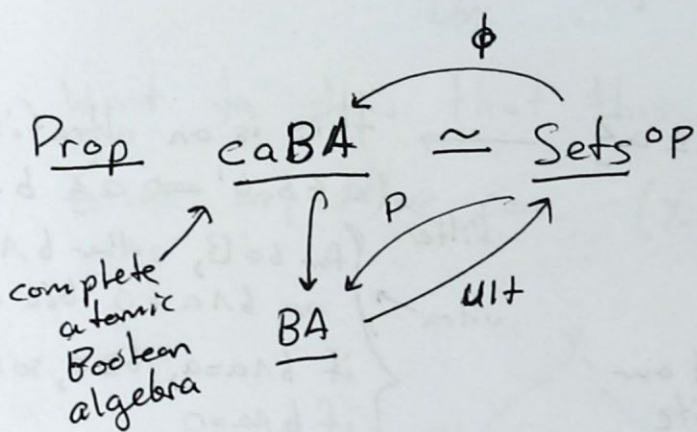 ϕ
Prop caBA ≃ Sets^op
P
Ult
complete
atomic
Boolean
algebra
BA